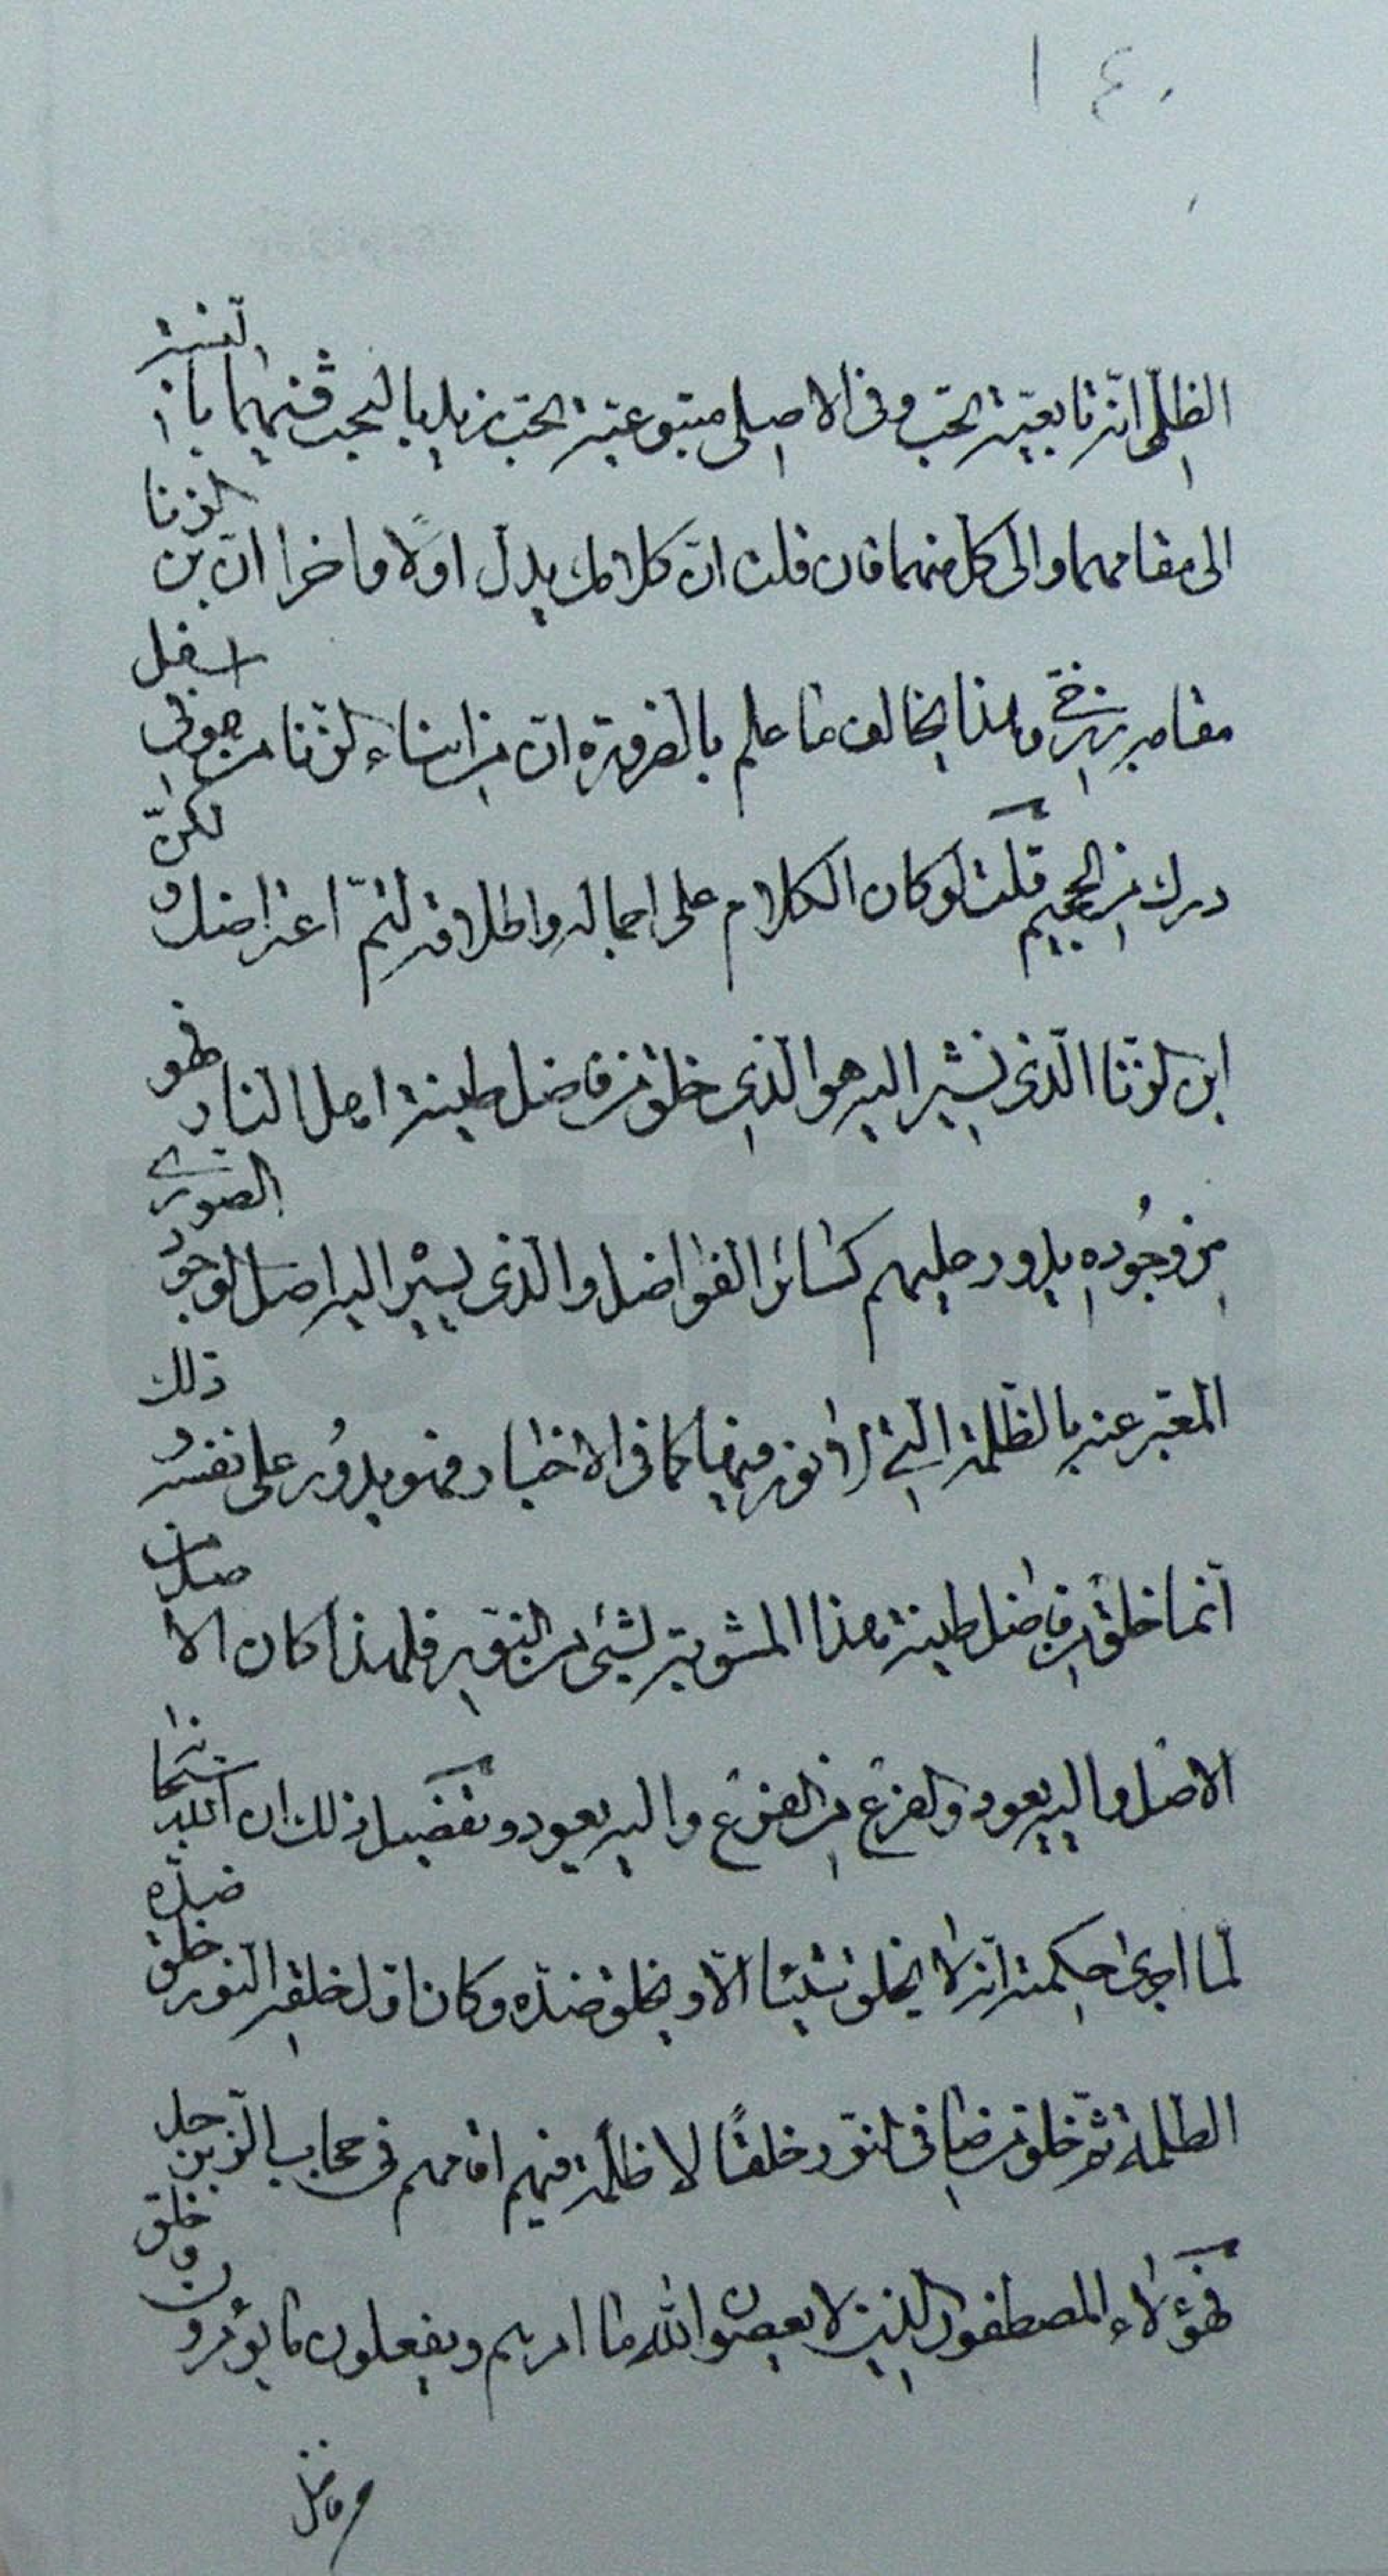 ١٤٠
الظلّی انّه تابعیّة الحب وفی الاصلی متبوعیّة الحب بزیل یا لمحب فنیهما بالنسبة
الی مقامهما والی کل منهما فان قلت انّ کلامك یدل اولًا واخرا انّ بن الزنا
مقامه برزخی وهذا یخالف ما علم بالضرورة انّ من ابناء الزنا من هو فی اسفل
درك من الجحیم قلت لو کان الکلام علی اجماله واطلاقه لتمّ اعتراضك ولکنّ
ابن الزنا الّذی نشیر الیه هو الّذی خلق من فاضل طینة اهل النار فهو
من وجوده یدور علیهم کسائر الفواضل والّذی یشیر الیه اصل الوجود الصوری
المعبّر عنه بالظلمة الّتی لا نور فیها کما فی الاخبار فهو یدور علی نفسه وذلك
انّما خلق من فاضل طینة هذا المشوبة بشیء من النور فلهذا کان الاصل من
الاصل والیه یعود والفرع من الفرع والیه یعود وتفصیل ذلك ان الله سبحانه
لمّا اجری حکمته انه لا یخلق شیئا الّا ویخلق ضدّه وکان اوّل خلقه النور خلق ضدّه
الظلمة ثمّ خلق من صافی النور خلقًا لا ظلمة فیهم اقامهم فی حجاب الزبرجد
فهؤلاء المصطفون الذین لا یعصون الله ما امرهم ویفعلون ما یؤمرون وخلق
من فاضل